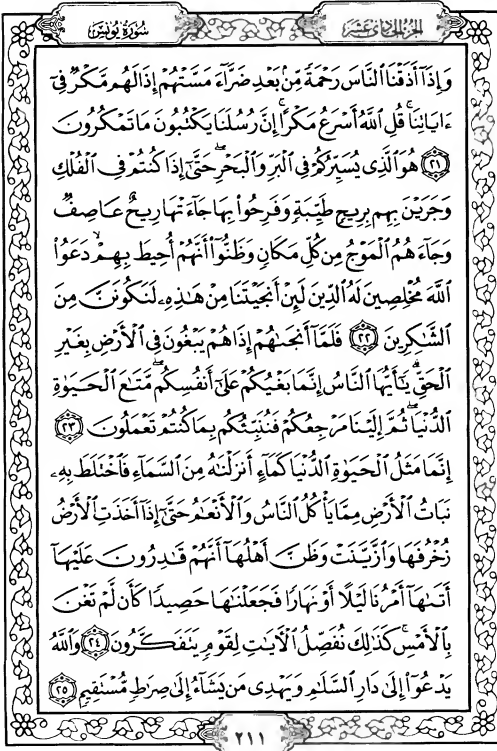 الجزء الحادى عشر
سورة يونس
وَإِذَآ أَذَقۡنَا ٱلنَّاسَ رَحۡمَةٗ مِّنۢ بَعۡدِ ضَرَّآءَ مَسَّتۡهُمۡ إِذَا لَهُم مَّكۡرٞ فِيٓ
ءَايَاتِنَاۚ قُلِ ٱللَّهُ أَسۡرَعُ مَكۡرًاۚ إِنَّ رُسُلَنَا يَكۡتُبُونَ مَا تَمۡكُرُونَ
٢١ هُوَ ٱلَّذِي يُسَيِّرُكُمۡ فِي ٱلۡبَرِّ وَٱلۡبَحۡرِۖ حَتَّىٰٓ إِذَا كُنتُمۡ فِي ٱلۡفُلۡكِ
وَجَرَيۡنَ بِهِم بِرِيحٖ طَيِّبَةٖ وَفَرِحُواْ بِهَا جَآءَتۡهَا رِيحٌ عَاصِفٞ
وَجَآءَهُمُ ٱلۡمَوۡجُ مِن كُلِّ مَكَانٖ وَظَنُّوٓاْ أَنَّهُمۡ أُحِيطَ بِهِمۡ دَعَوُاْ
ٱللَّهَ مُخۡلِصِينَ لَهُ ٱلدِّينَ لَئِنۡ أَنجَيۡتَنَا مِنۡ هَٰذِهِۦ لَنَكُونَنَّ مِنَ
ٱلشَّٰكِرِينَ ٢٢ فَلَمَّآ أَنجَىٰهُمۡ إِذَا هُمۡ يَبۡغُونَ فِي ٱلۡأَرۡضِ بِغَيۡرِ
ٱلۡحَقِّۗ يَٰٓأَيُّهَا ٱلنَّاسُ إِنَّمَا بَغۡيُكُمۡ عَلَىٰٓ أَنفُسِكُمۖ مَّتَٰعَ ٱلۡحَيَوٰةِ
ٱلدُّنۡيَاۖ ثُمَّ إِلَيۡنَا مَرۡجِعُكُمۡ فَنُنَبِّئُكُم بِمَا كُنتُمۡ تَعۡمَلُونَ ٢٣
إِنَّمَا مَثَلُ ٱلۡحَيَوٰةِ ٱلدُّنۡيَا كَمَآءٍ أَنزَلۡنَٰهُ مِنَ ٱلسَّمَآءِ فَٱخۡتَلَطَ بِهِۦ
نَبَاتُ ٱلۡأَرۡضِ مِمَّا يَأۡكُلُ ٱلنَّاسُ وَٱلۡأَنۡعَٰمُ حَتَّىٰٓ إِذَآ أَخَذَتِ ٱلۡأَرۡضُ
زُخۡرُفَهَا وَٱزَّيَّنَتۡ وَظَنَّ أَهۡلُهَآ أَنَّهُمۡ قَٰدِرُونَ عَلَيۡهَآ
أَتَىٰهَآ أَمۡرُنَا لَيۡلًا أَوۡ نَهَارٗا فَجَعَلۡنَٰهَا حَصِيدٗا كَأَن لَّمۡ تَغۡنَ
بِٱلۡأَمۡسِۚ كَذَٰلِكَ نُفَصِّلُ ٱلۡأٓيَٰتِ لِقَوۡمٖ يَتَفَكَّرُونَ ٢٤ وَٱللَّهُ
يَدۡعُوٓاْ إِلَىٰ دَارِ ٱلسَّلَٰمِ وَيَهۡدِي مَن يَشَآءُ إِلَىٰ صِرَٰطٖ مُّسۡتَقِيمٖ ٢٥
٢١١